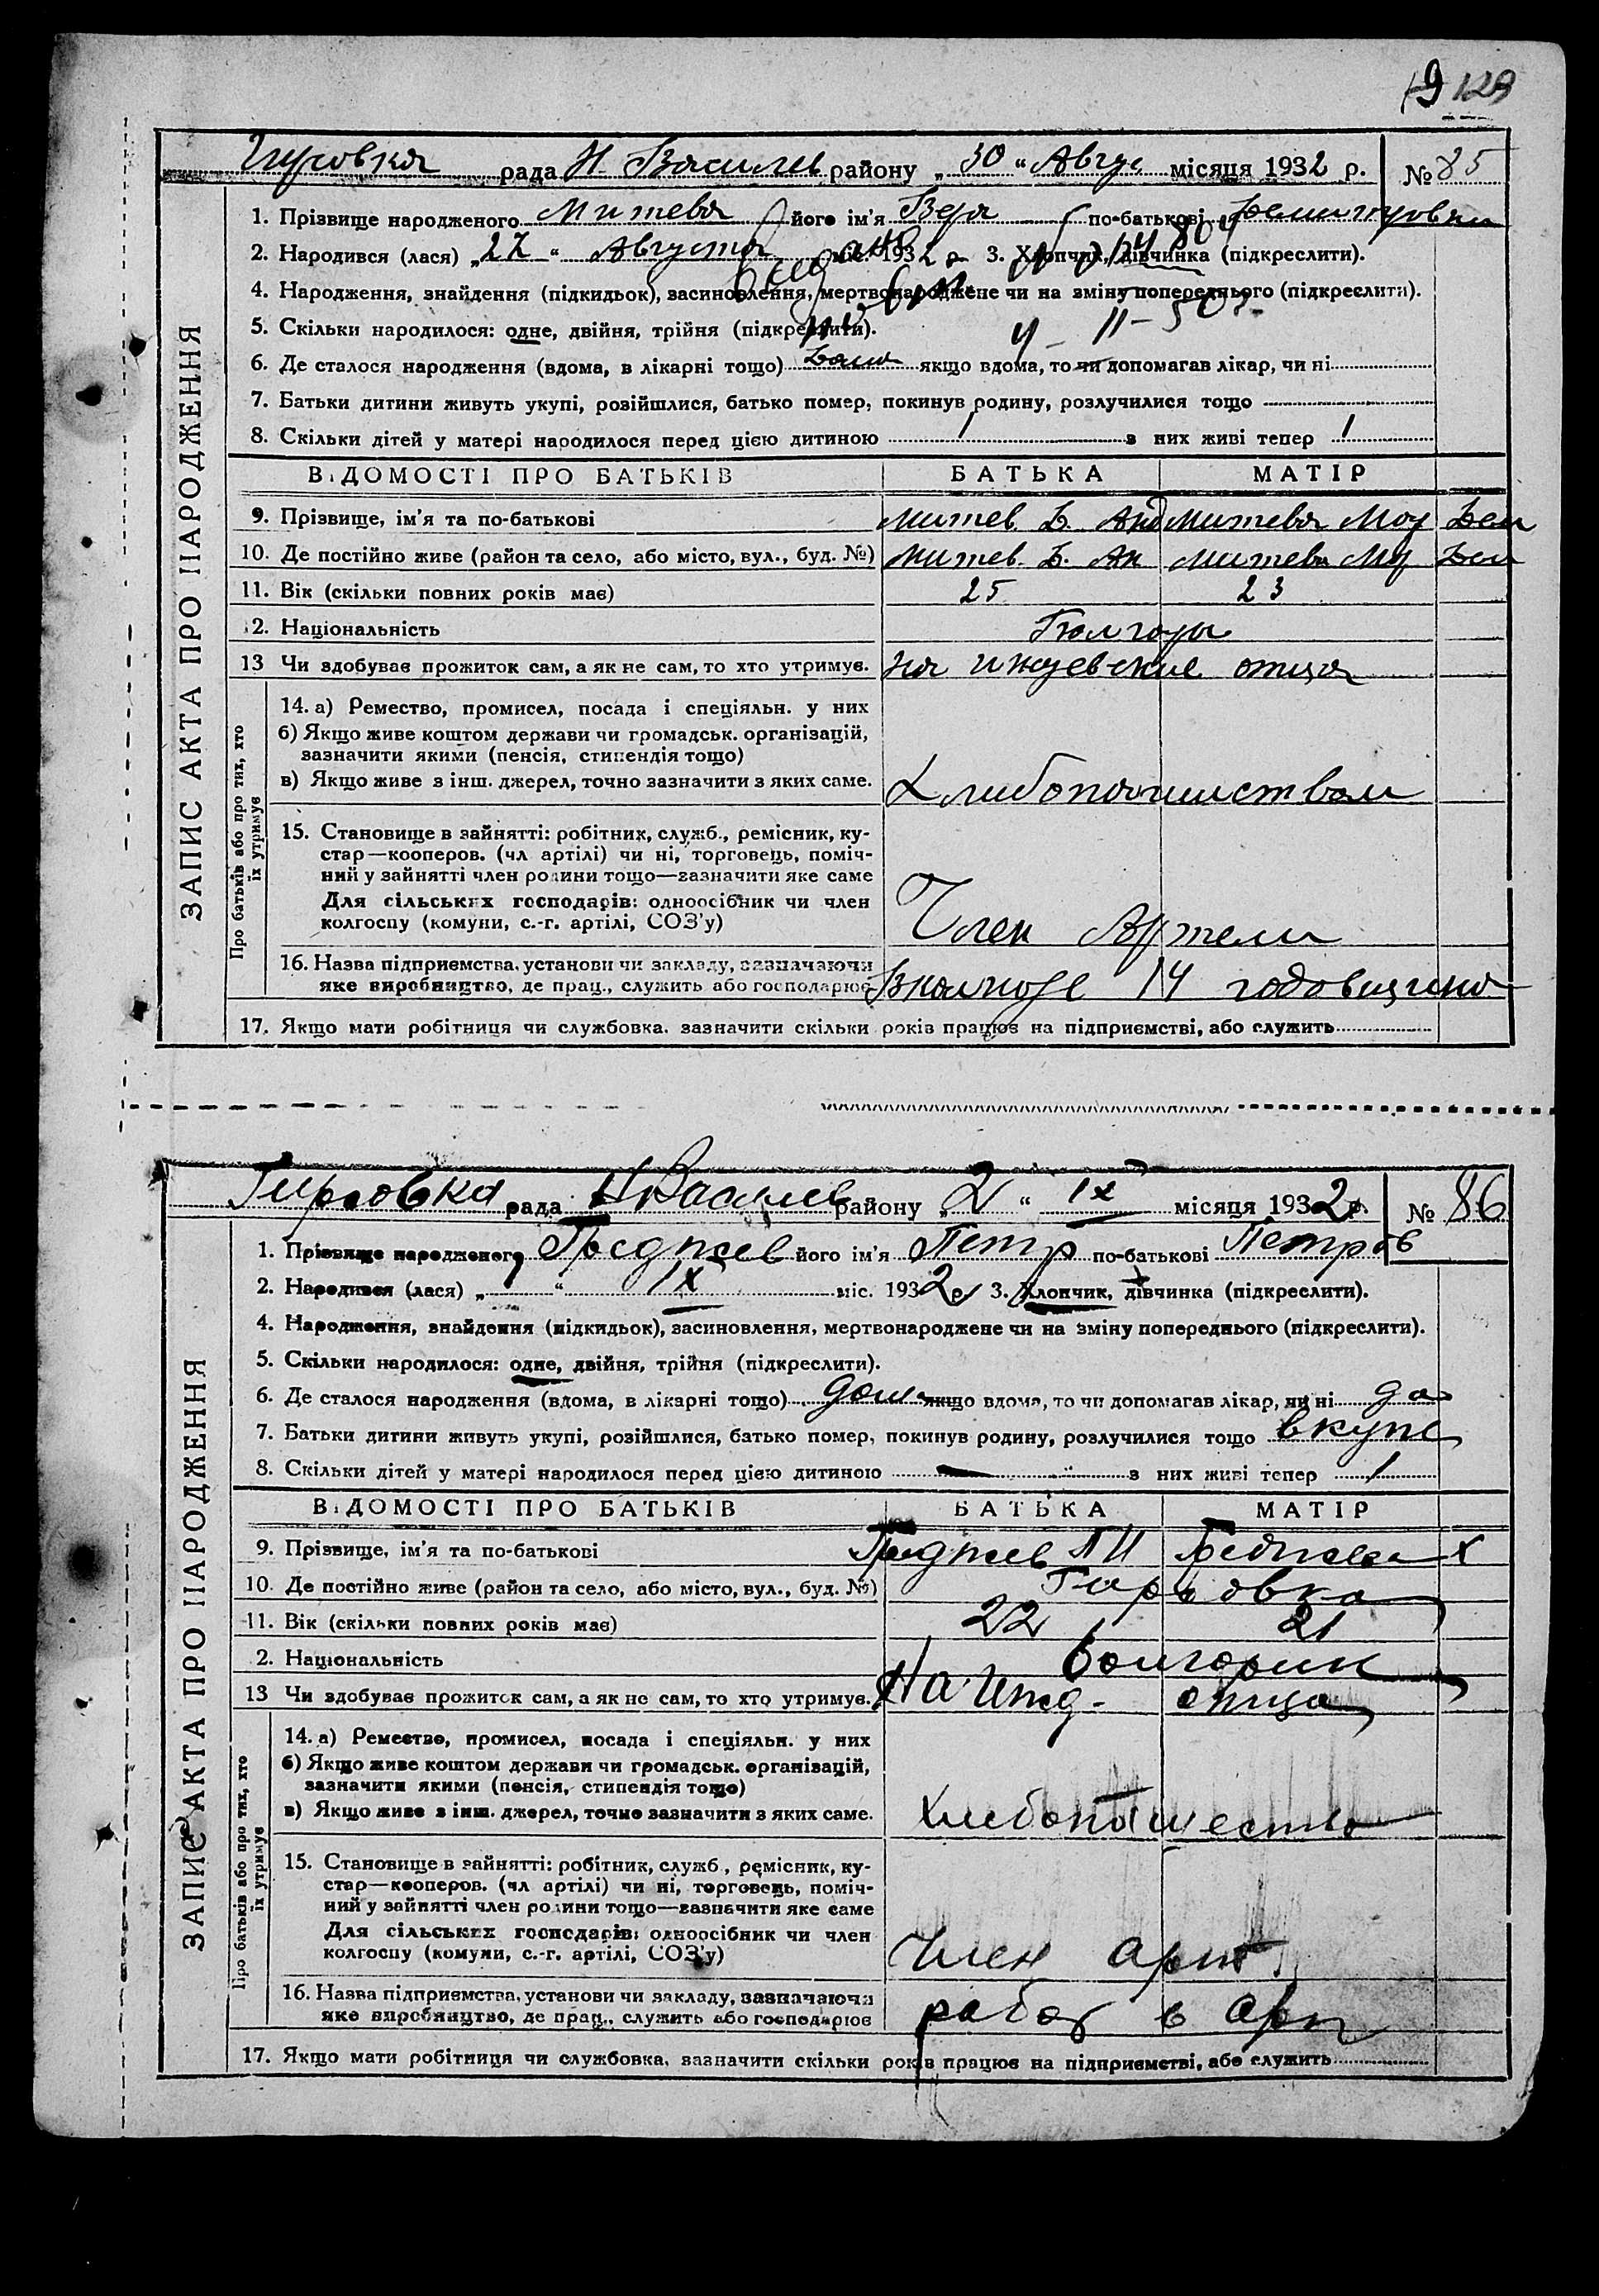 129
рада Н. Васильев району „ 30 “ Авгус місяця 1932 р. № 85
1. Прізвище народженого Митева його ім’я Вера по-батькові
2. Народився (лася) „ 27 “ Августа міс. 1932 р 3. Хлопчик, дівчинка (підкреслити).
4. Народження, знайдення (підкидьок), засиновлення, мертвонароджене чи на зміну попереднього (підкреслити).
5. Скільки народилося: одне, двійня, трійня (підкреслити).
6. Де сталося народження (вдома, в лікарні тощо) якщо вдома, то чи допомагав лікар, чи ні
7. Батьки дитини живуть укупі, розійшлися, батько помер, покинув родину, розлучилися тощо
8. Скільки дітей у матері народилося перед цією дитиною 1 з них живі тепер 1
ЗАПИС АКТА ПРО НАРОДЖЕННЯ
ВІДОМОСТІ ПРО БАТЬКІВ БАТЬКА МАТІР
9. Прізвище, ім’я та по-батькові Митев. Д. Анд Митева
10. Де постійно живе (район та село, або місто, вул., буд. №) Митев. Д. Ан Митева
11. Вік (скільки повних років має) 25 23
12. Національність
13 Чи здобуває прожиток сам, а як не сам, то хто утримує. на иждевение отца
Про батьків або про тих, хто
їх утримує
14. а) Ремество, промисел, посада і спеціяльн. у них
б) Якщо живе коштом держави чи громадськ. організацій,
зазначити якими (пенсія, стипендія тощо)
в) Якщо живе з інш. джерел, точно зазначити з яких саме. Хлибопашиством
15. Становище в зайнятті: робітник, служб., ремісник, ку-
стар—кооперов. (чл артілі) чи ні, торговець, поміч-
ний у зайнятті член родини тощо—зазначити яке саме
Для сільських господарів: одноосібник чи член
колгоспу (комуни, с.-г. артілі, СОЗ’у) Член Артели
16. Назва підприємства, установи чи закладу, зазначаючи
яке виробництво, де прац., служить або господарює 14 годовщина
17. Якщо мати робітниця чи службовка, зазначити скільки років працює на підприємстві, або служить
Гирсовка рада Н Василев району „ 2 “ IX місяця 1932 р. № 86
1. Прізвище народженого його ім’я Петр по-батькові Петров
2. Народився (лася) „ “ IX міс. 1932 р 3. Хлопчик, дівчинка (підкреслити).
4. Народження, знайдення (підкидьок), засиновлення, мертвонароджене чи на зміну попереднього (підкреслити).
5. Скільки народилося: одне, двійня, трійня (підкреслити).
6. Де сталося народження (вдома, в лікарні тощо) дома якщо вдома, то чи допомагав лікар, чи ні да
7. Батьки дитини живуть укупі, розійшлися, батько помер, покинув родину, розлучилися тощо вкупе
8. Скільки дітей у матері народилося перед цією дитиною — з них живі тепер 1
ЗАПИС АКТА ПРО НАРОДЖЕННЯ
ВІДОМОСТІ ПРО БАТЬКІВ БАТЬКА МАТІР
9. Прізвище, ім’я та по-батькові
10. Де постійно живе (район та село, або місто, вул., буд. №) Гирсовка
11. Вік (скільки повних років має) 22 21
2. Національність
13 Чи здобуває прожиток сам, а як не сам, то хто утримує. На Ижд. отца
Про батьків або про тих, хто
їх утримує
14. а) Ремество, промисел, посада і спеціяльн. у них
б) Якщо живе коштом держави чи громадськ. організацій,
зазначити якими (пенсія, стипендія тощо)
в) Якщо живе з інш. джерел, точно зазначити з яких саме. Хлебопашество
15. Становище в зайнятті: робітник, служб., ремісник, ку-
стар—кооперов. (чл артілі) чи ні, торговець, поміч-
ний у зайнятті член родини тощо—зазначити яке саме
Для сільських господарів: одноосібник чи член
колгоспу (комуни, с.-г. артілі, СОЗ’у) Член арт.
16. Назва підприємства, установи чи закладу, зазначаючи
яке виробництво, де прац., служить або господарює работ в Арт
17. Якщо мати робітниця чи службовка, зазначити скільки років працює на підприємстві, або служить